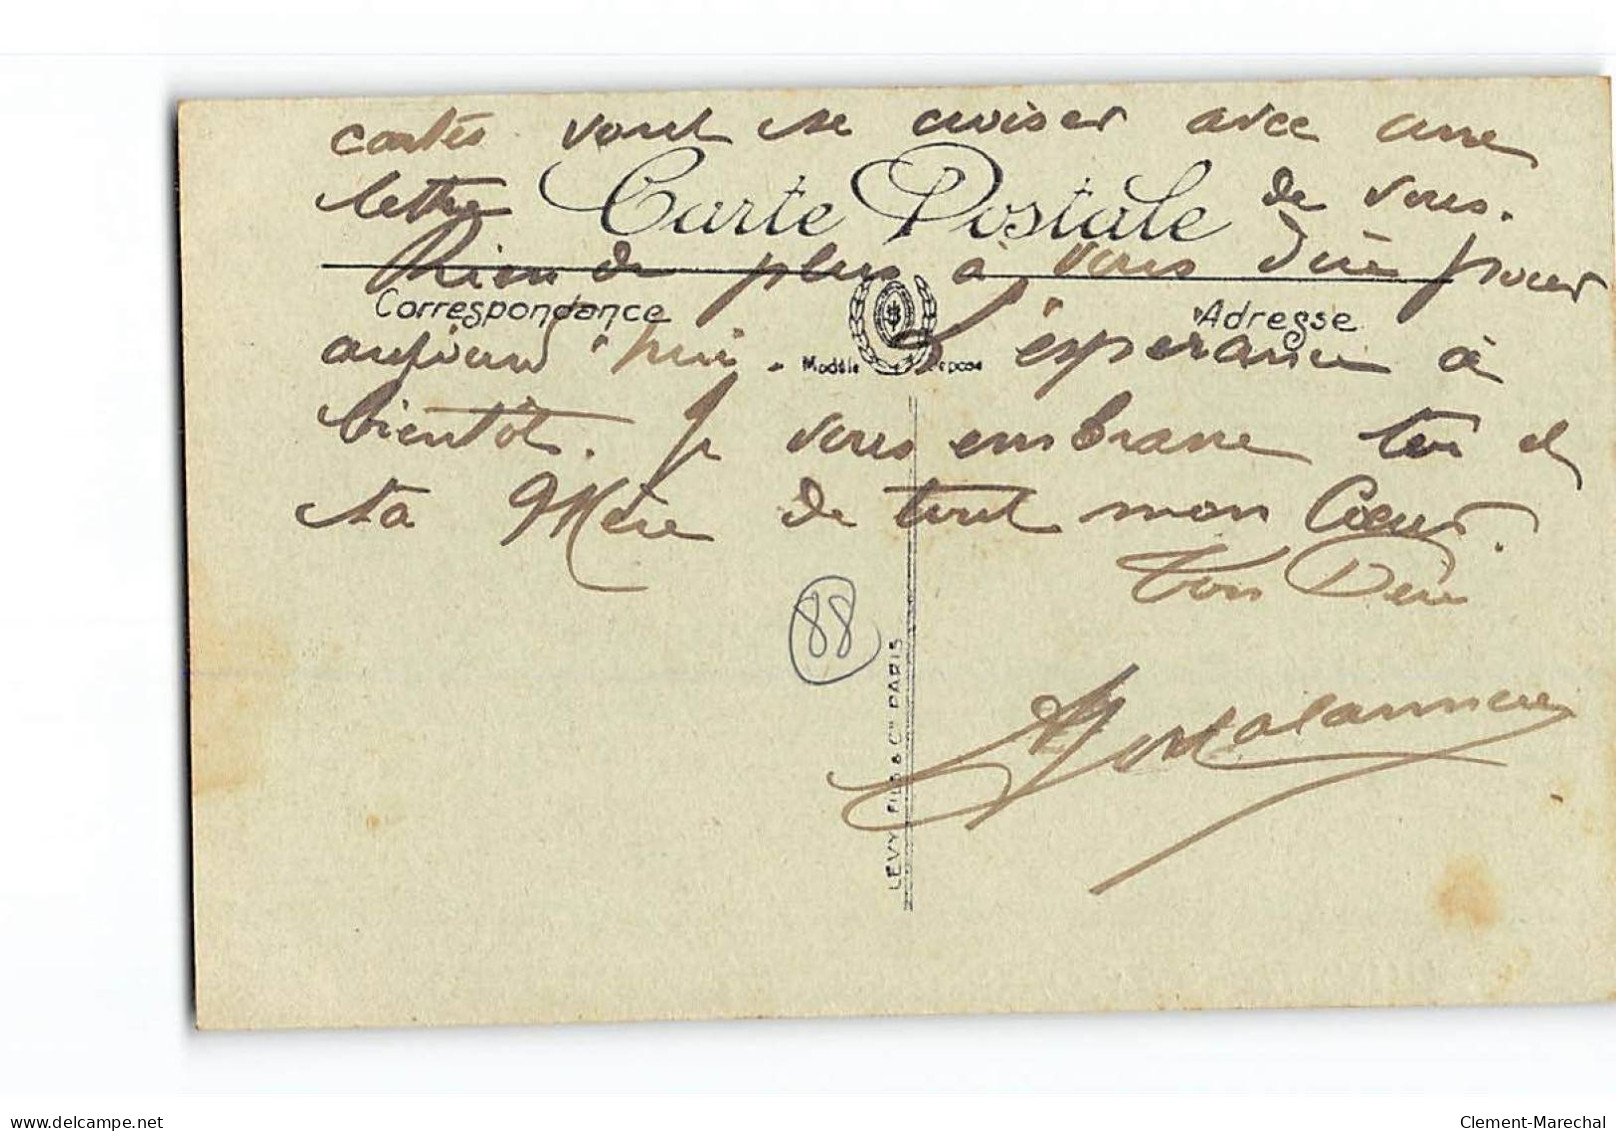 cartes vont se croiser avec une
lettre de vous.
Carte Postale
Rien de plus à vous dire pour
Correspondance
Adresse
aujourd'hui. L'espérance à
Modèle Déposé
bientôt. Je vous embrasse toi et
ta Mère de tout mon Coeur.
Ton Père
88
LEVY FILS & Cie PARIS
delcampe.net
Clement-Marechal